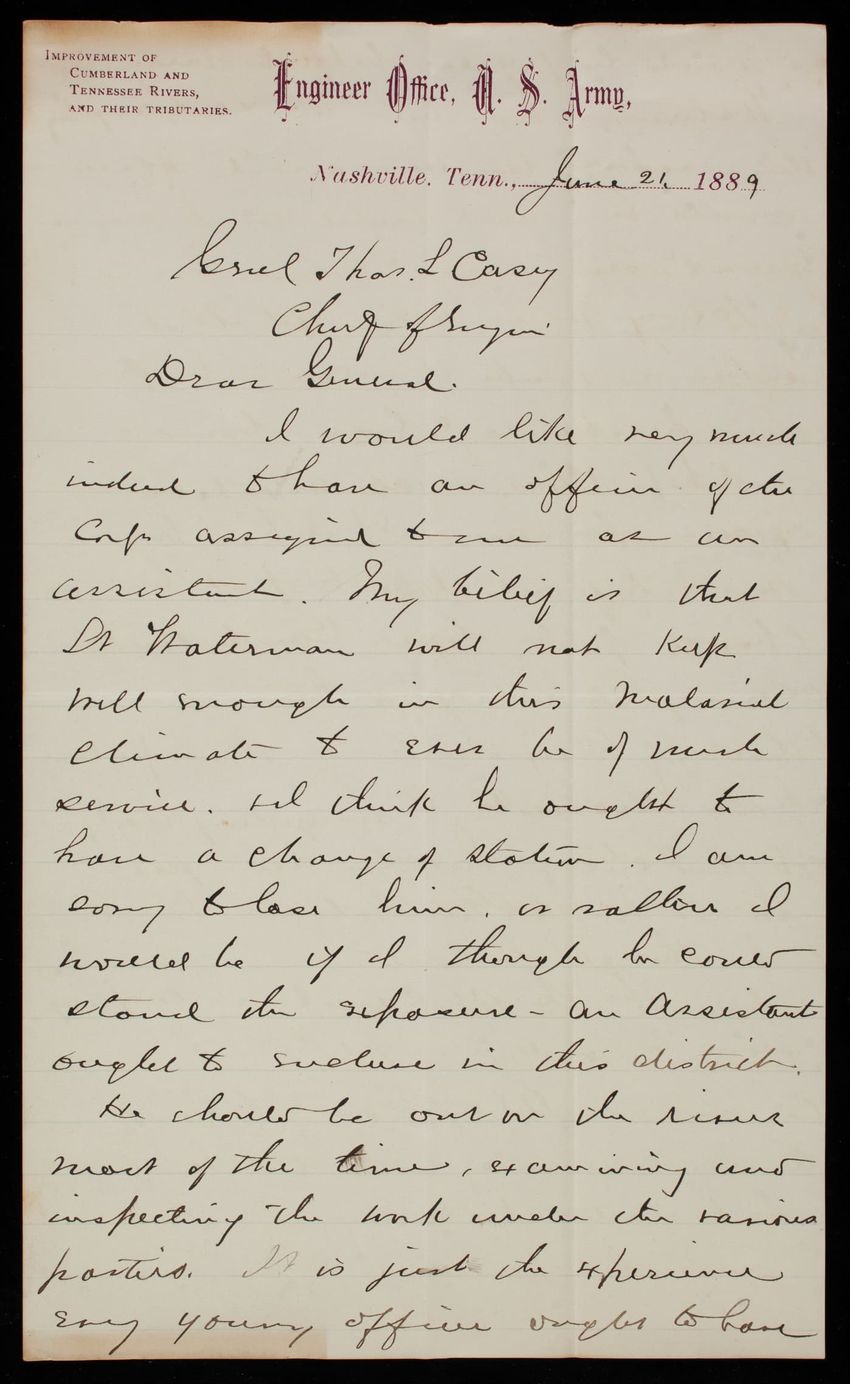 IMPROVEMENT OF
CUMBERLAND AND
TENNESSEE RIVERS,
AND THEIR TRIBUTARIES.
Engineer Office, U. S. Army,
Nashville, Tenn., June 21, 1889
Genl Thos. L Casey
Chief of Engrs
Dear General.
I would like very much
indeed to have an officer of the
Corps assigned to me as an
assistant. My belief is that
Lt Waterman will not keep
well enough in this Malarial
climate to ever be of much
service. & I think he ought to
have a change of station. I am
sorry to lose him, or rather I
would be if I though he could
stand the exposure - an Assistant
ought to endure in this district.
He should be out on the rivers
most of the time, examining and
inspecting the work under the various
parties. It is just the experience
every young officer ought to have